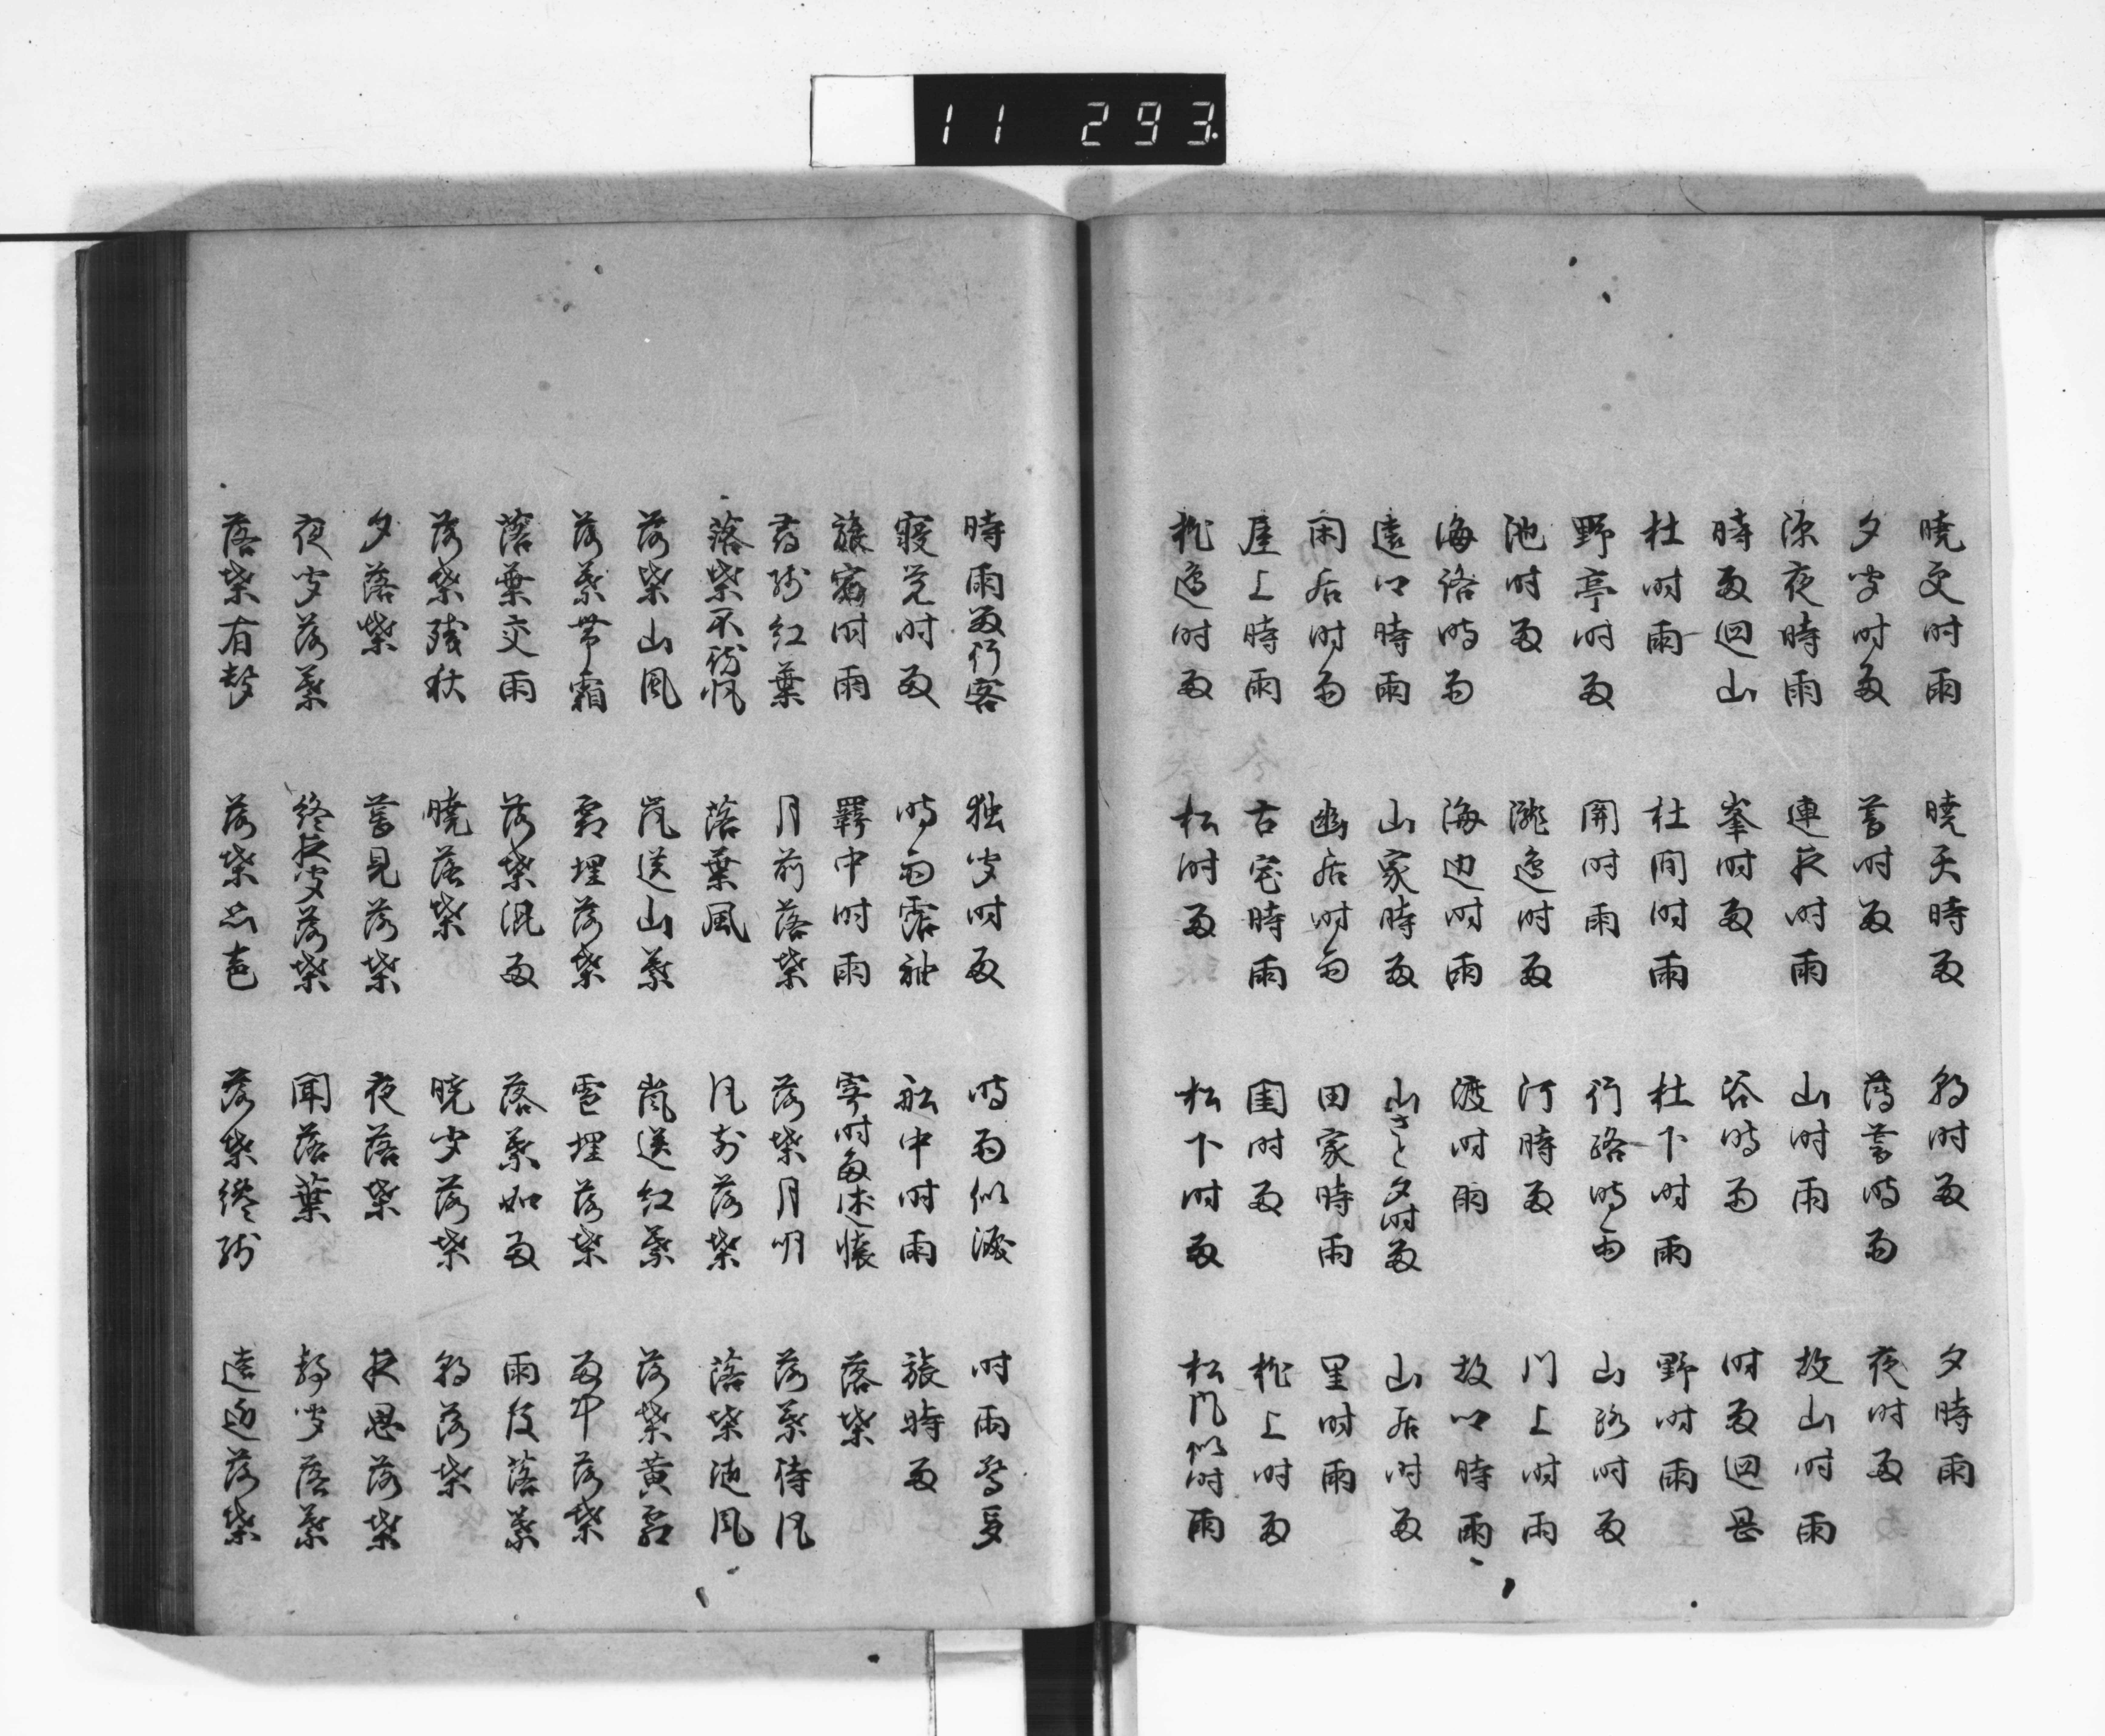 11 293
暁更時雨 暁天時雨 朝時雨 夕時雨
夕聞時雨 暮時雨 薄暮時雨 夜時雨
深夜時雨 連夜時雨 山時雨 故山時雨
時雨廻山 峯時雨 谷時雨 時雨廻男
杜時雨 杜間時雨 杜下時雨 野時雨
野亭時雨 関時雨 行路時雨 山路時雨
池時雨 滝辺時雨 河時雨 門上時雨
海路時雨 海辺時雨 渡時雨 故郷時雨
遠郷時雨 山家時雨 山さと夕時雨 山居時雨
閑居時雨 幽居時雨 田家時雨 里時雨
屋上時雨 古宅時雨 園時雨 椎上時雨
時雨 松時雨 松下時雨 松風似時雨
時雨行客 独聞時雨 時雨似涙
寝覚時雨 時雨霑袖 船中時雨 旅時雨
旅宿時雨 羇中時雨 寄時雨述懐 落葉
紅葉 月前落葉 落葉月明 落葉待風
落葉不待風 落葉風 風前落葉 落葉随風
落葉山風 嵐送山葉 嵐送紅葉 落葉黄
落葉帯霜 霜埋落葉 雪埋落葉 雨中落葉
落葉交雨 落葉混雨 落葉如雨 雨後落葉
落葉残秋 暁落葉 暁聞落葉 朝落葉
夕落葉 暮見落葉 夜落葉 夜思落葉
夜聞落葉 終夜聞落葉 聞落葉 静聞落葉
落葉有声 落葉 落葉 遠近落葉